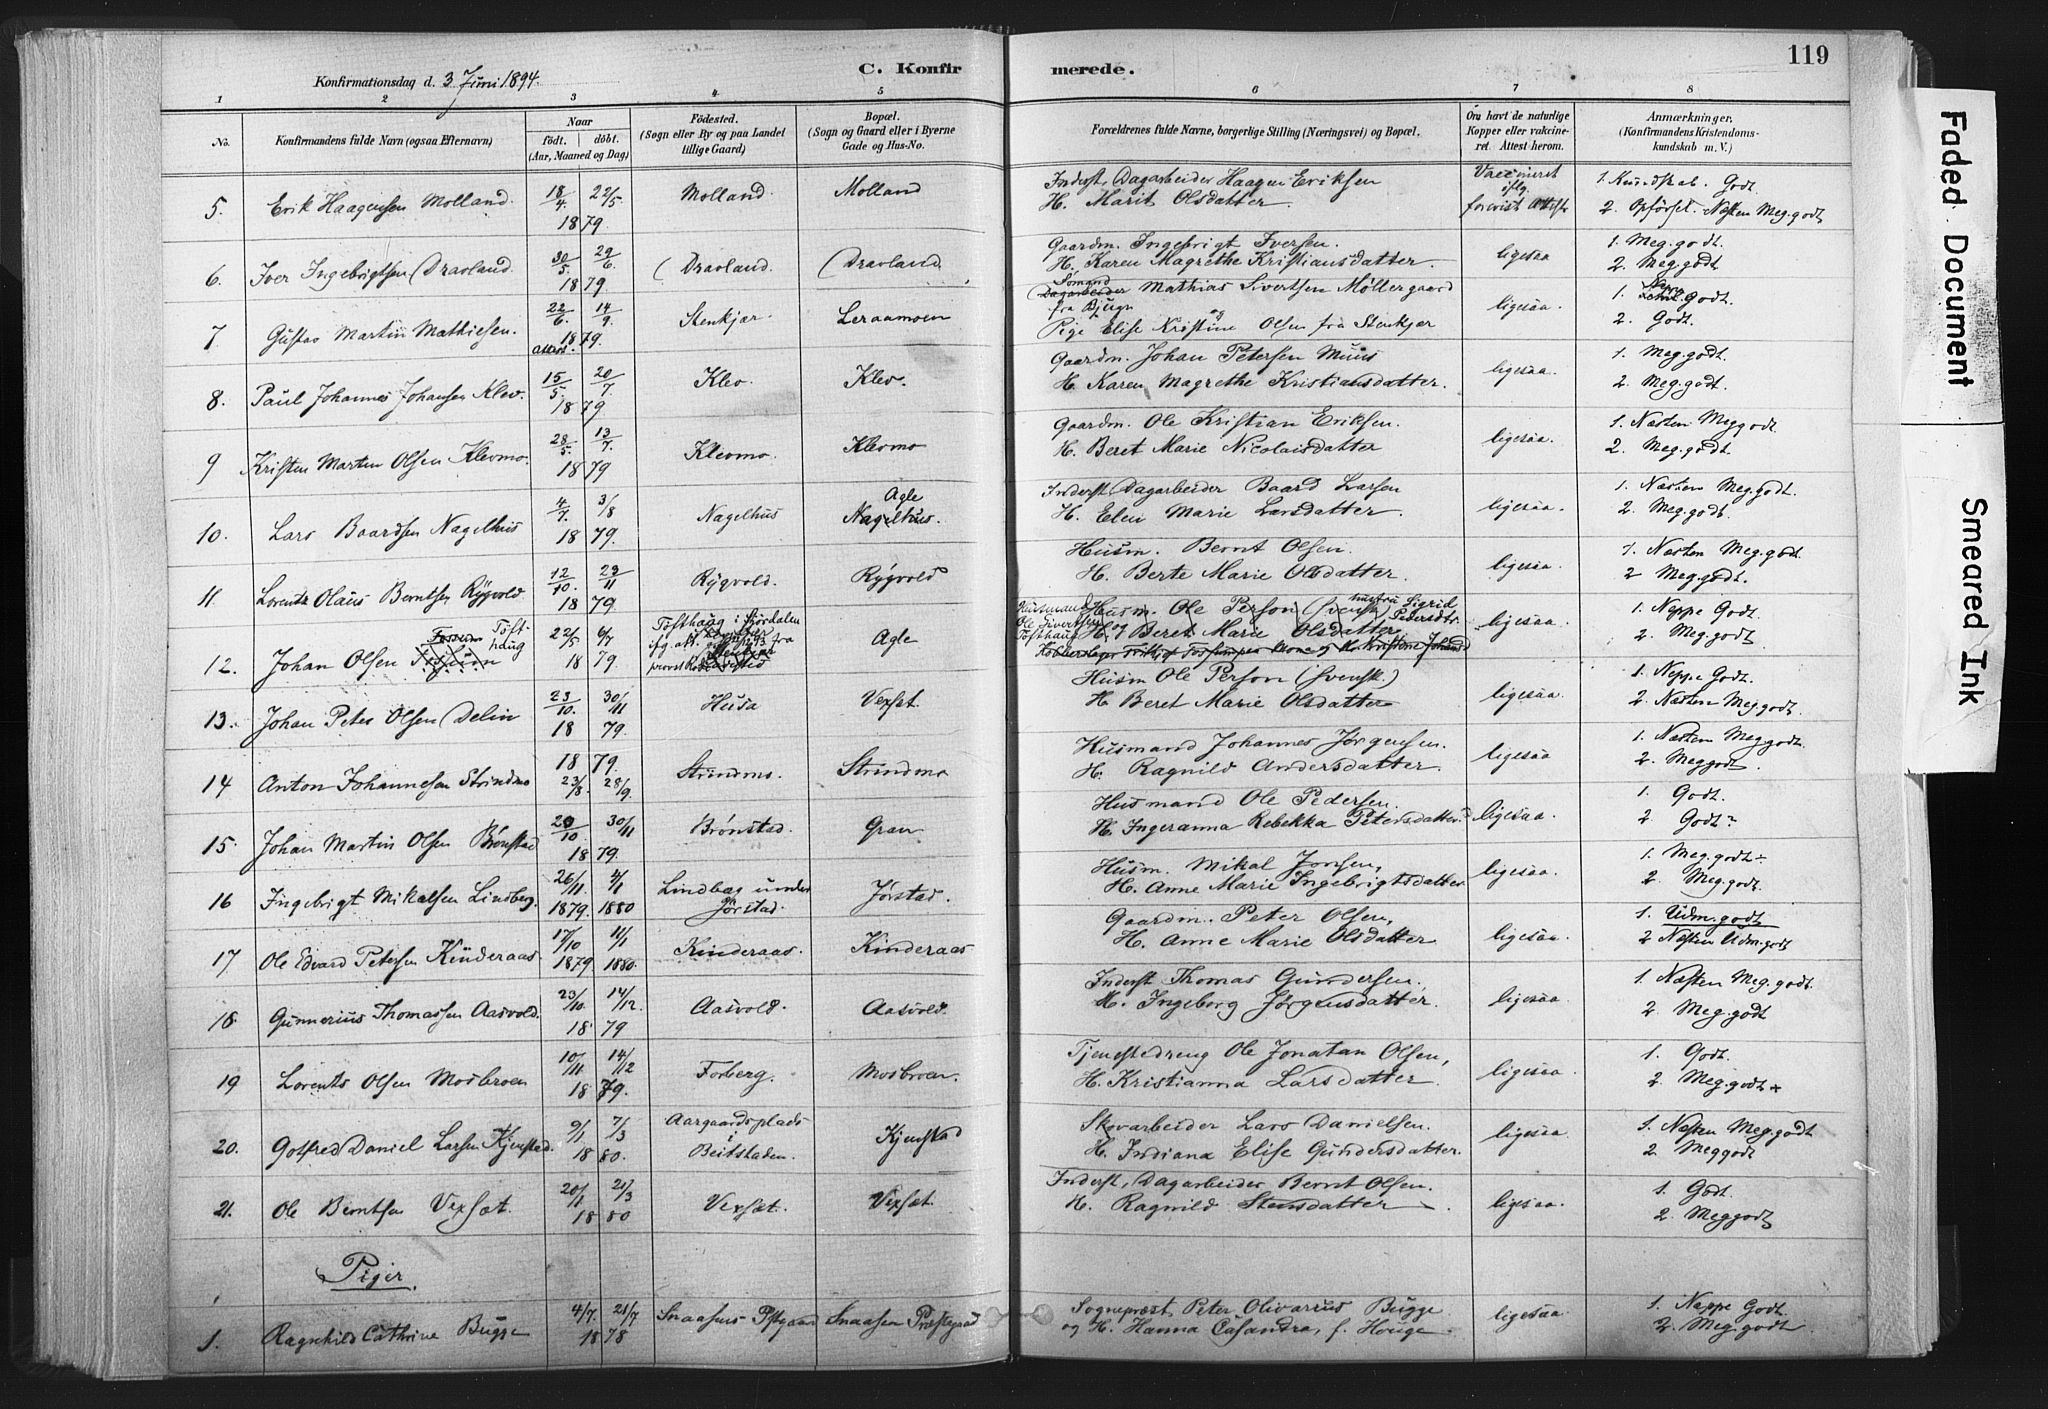 119
C. Konfirmerede.
Konfirmationsdag d. 3 Juni 1894.
1 2 3 4 5 6 7 8
No.
Konfirmandens fulde Navn (ogsaa Efternavn)
Naar
født. døbt.
(Aar, Maaned og Dag)
Fødested.
(Sogn eller By og paa Landet
tillige Gaard)
Bopæl.
(Sogn og Gaard eller i Byerne
Gade og Hus-No.
Forældrenes fulde Navne, borgerlige Stilling (Næringsvei) og Bopæl.
Om havt de naturlige
Kopper eller vaccine-
ret. Attest herom.
Anmærkninger.
(Konfirmandens Kristendoms-
kundskab m. V.)
5. Erik Haagensen Molland. 18/4 22/5 1879. Molland. Molland
Inderst, Dagarbeider Haagen Eriksen
H. Marit Olsdatter.
Vaccineret iflg. forevist Attest
1. Kundskab. Godt.
2. Opførsel. Næsten Meg. godt
6. Iver Ingebrigtsen Dravland. 30/5. 29/6. 1879. Dravland. Dravland
Gaardm. Ingebrigt Iversen.
H. Karen Magrethe Kristiansdatter.
ligesaa
1. Meg. godt.
2. Meg. godt
7 Gustav Martin Mathiesen. 22/6. 14/9. 1879. Stenkjær. Leraamoen
Sømand
Dagarbeider Mathias Sivertsen Møllergaard
fra Bjugn og
Pige Elise Kristine Olsen fra Stenkjær
ligesaa.
1. Godt.
2. Godt.
8. Paul Johannes Johansen Klev. 15/5. 20/7 1879 Klev. Klev.
Gaardm. Johan Petersen Muus
H. Karen Magrethe Kristiansdatter.
ligesaa.
1. Meg. godt.
2. Meg. godt.
9 Kristen Martin Olsen Klevmo. 28/5. 13/7. 1879 Klevmo. Klevmo
Gaardm. Ole Kristian Eriksen.
H. Beret Marie Nicolaisdatter
ligesaa.
1. Næsten Meg godt.
2. Meg. godt.
10. Lars Baardsen Nagelhus 4/7. 3/8 1879. Nagelhus Agle Nagelhus.
Inderst, Dagarbeider Baard Larsen
H. Elen Marie Larsdatter.
ligesaa.
1. Næsten Meg. godt.
2. Meg. godt.
11. Lorentz Olaus Berntsen Rygvold 12/10. 23/11 1879. Rygvold. Rygvold
Husm. Bernt Olsen.
H. Berte Marie Olsdatter.
ligesaa.
1. Næsten Meg. godt.
2 Meg. godt.
12. Johan Olsen Tofthaug 22/5 6/7 1879. Tofthaug i Stjørdalen Agle
Husmand Ole Sivertsen Tofthaug
Husm. Ole Person (svensk) hustru Sigrid Pedersdtr.
og
H. Beret Marie Olsdatter
ligesaa.
1. Neppe Godt.
2. Meg. godt.
13. Johan Peter Olsen Delin 23/10. 30/11 1879. Husa Vexsæt.
Husm Ole Person (svensk.)
H Beret Marie Olsdatter
ligesaa.
1. Neppe Godt.
2. Næsten Meg godt.
14 Anton Johannesen Strindmo 1879. 23/8. 28/9. Strindmo. Strindmo
Husmand Johannes Jørgensen.
H. Ragnild Andersdatter.
ligesaa
1. Næsten Meg godt.
2. Meg godt.
15. Johan Martin Olsen Brønstad 20/10. 30/11 1879. Brønstad. Gran
Husmand Ole Pedersen.
H. Ingeranna Rebekka Petersdatter.
ligesaa.
1. Godt.
2 Godt.
16 Ingebrigt Mikalsen Lindberg. 26/11. 4/1 1879. 1880 Lindbæg under Jørstad. Jørstad.
Husm. Mikal Jonsen,
H. Anne Marie Ingebrigtsdatter
ligesaa.
1. Meg. godt
2. Meg. godt.
17 Ole Edvard Petersen Kinderaas 17/10 11/1 1879 1880. Kinderaas. Kinderaas
Gaardm. Peter Olsen,
H. Anne Marie Olsdatter
ligesaa.
1. Udm. godt
2 Næsten Udm. godt
18. Gunnerius Thomassen Aasvold. 23/10. 14/12. 1879 Aasvold. Aasvold.
Inderst Thomas Gundersen.
H. Ingeborg Jørgensdatter.
ligesaa.
1. Næsten Meg. godt.
2 Meg. godt
19 Lorents Olsen Mosbroen 10/11 14/12 1879. Forberg. Mosbroen.
Tjenestedreng Ole Jonatan Olsen,
H. Kristianna Larsdatter.
ligesaa.
1. Godt.
2. Meg. godt
20. Gotfred Daniel Larsen Kjenstad. 9/1 7/3 1880. Aargaardsplads i Beitstaden. Kjenstad
Skovarbeider Lars Danielsen.
H. Indiana Elise Gundersdatter.
ligesaa.
1. Næsten Meg. godt
2. Meg godt
21. Ole Berntsen Vexsæt. 20/1 21/3 1880 Vexsæt. Vexsæt.
Inderst, Dagarbeider Bernt Olsen.
H. Ragnild Stensdatter.
ligesaa.
1. Godt.
2. Meg godt
Piger.
1. Ragnhild Cathrine Bugge 4/7. 21/7 1878 Snaasens Pstgaard Snaasen Præstegaard
Sognepræst Peter Olivarius Bugge
og H. Hanna Casandra, f. Houge.
ligesaa
1. Neppe Godt.
2. Meg. godt.
Faded Document
Smeared Ink